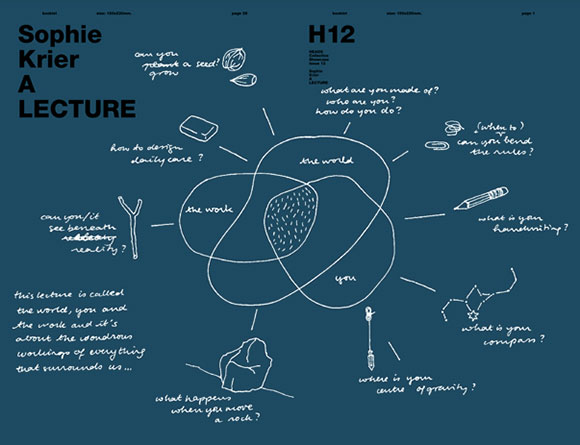 booklet
size: 160x230mm.
page 28
booklet
size: 160x230mm.
page 1
Sophie
Krier
A
LECTURE
H12
Issue 12
Sophie
Krier
A
LECTURE
can you
plant a seed?
grow
what are you made of?
who are you?
how do you do?
(when to)
can you bend
the rules?
how to design
daily care?
the world
the work
you
can you/it
see beneath
reality?
what is your
handwriting?
what is your
compass?
this lecture is called
the world, you and
the work and it's
about the wondrous
workings of everything
that surrounds us...
what happens
when you move
a rock?
where is your
centre of gravity?